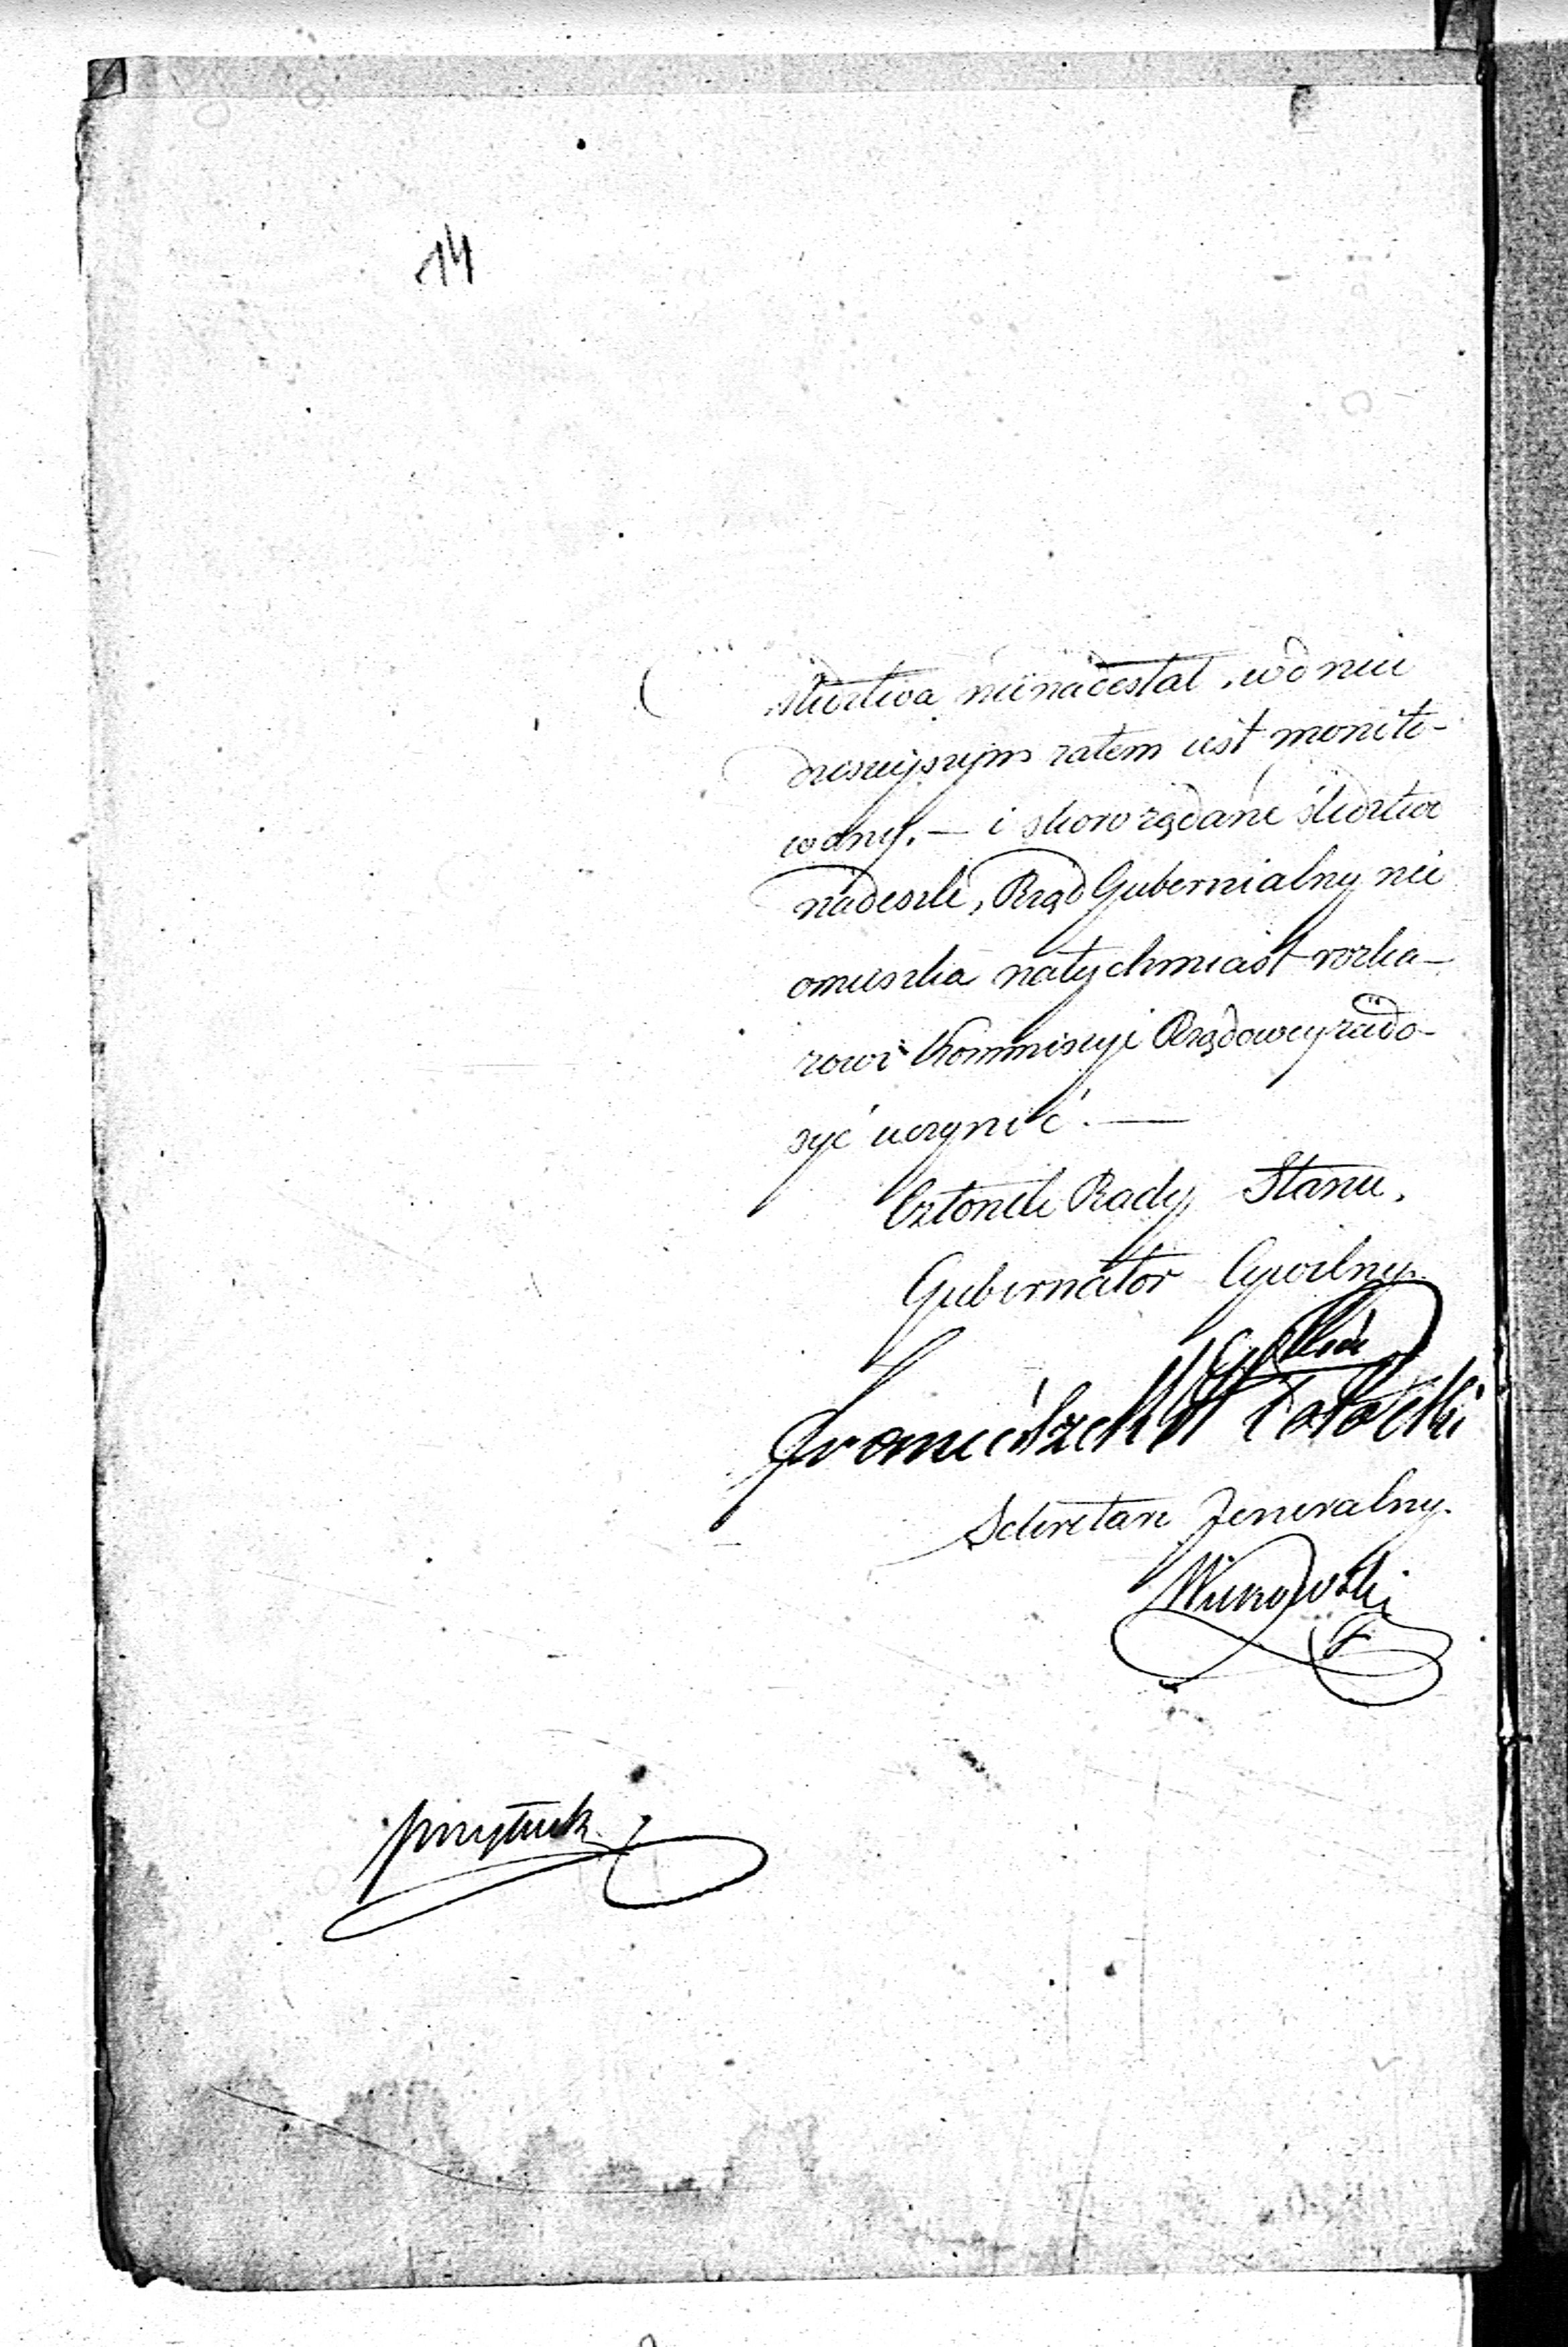 14
śledztwa nienadesłał, w dniu
dzisieyszym zatem iest monito-
wany. — i skoro żądane śledztwo
nadeszle, Rząd Gubernialny nie
omieszka natychmiast rozka-
zowi Kommissyi Rządowey zado-
syć uczynić. —
Członek Rady Stanu,
Gubernator Cywilny
Franciszek Potocki
Sekretarz Jeneralny.